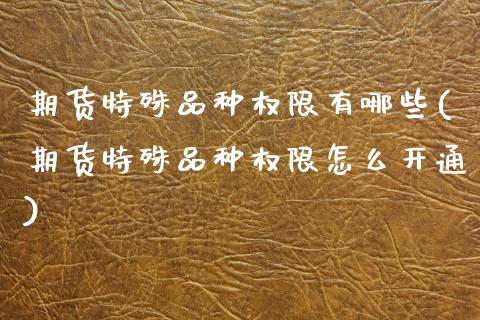 期货特殊品种权限有哪些(
期货特殊品种权限怎么开通
)